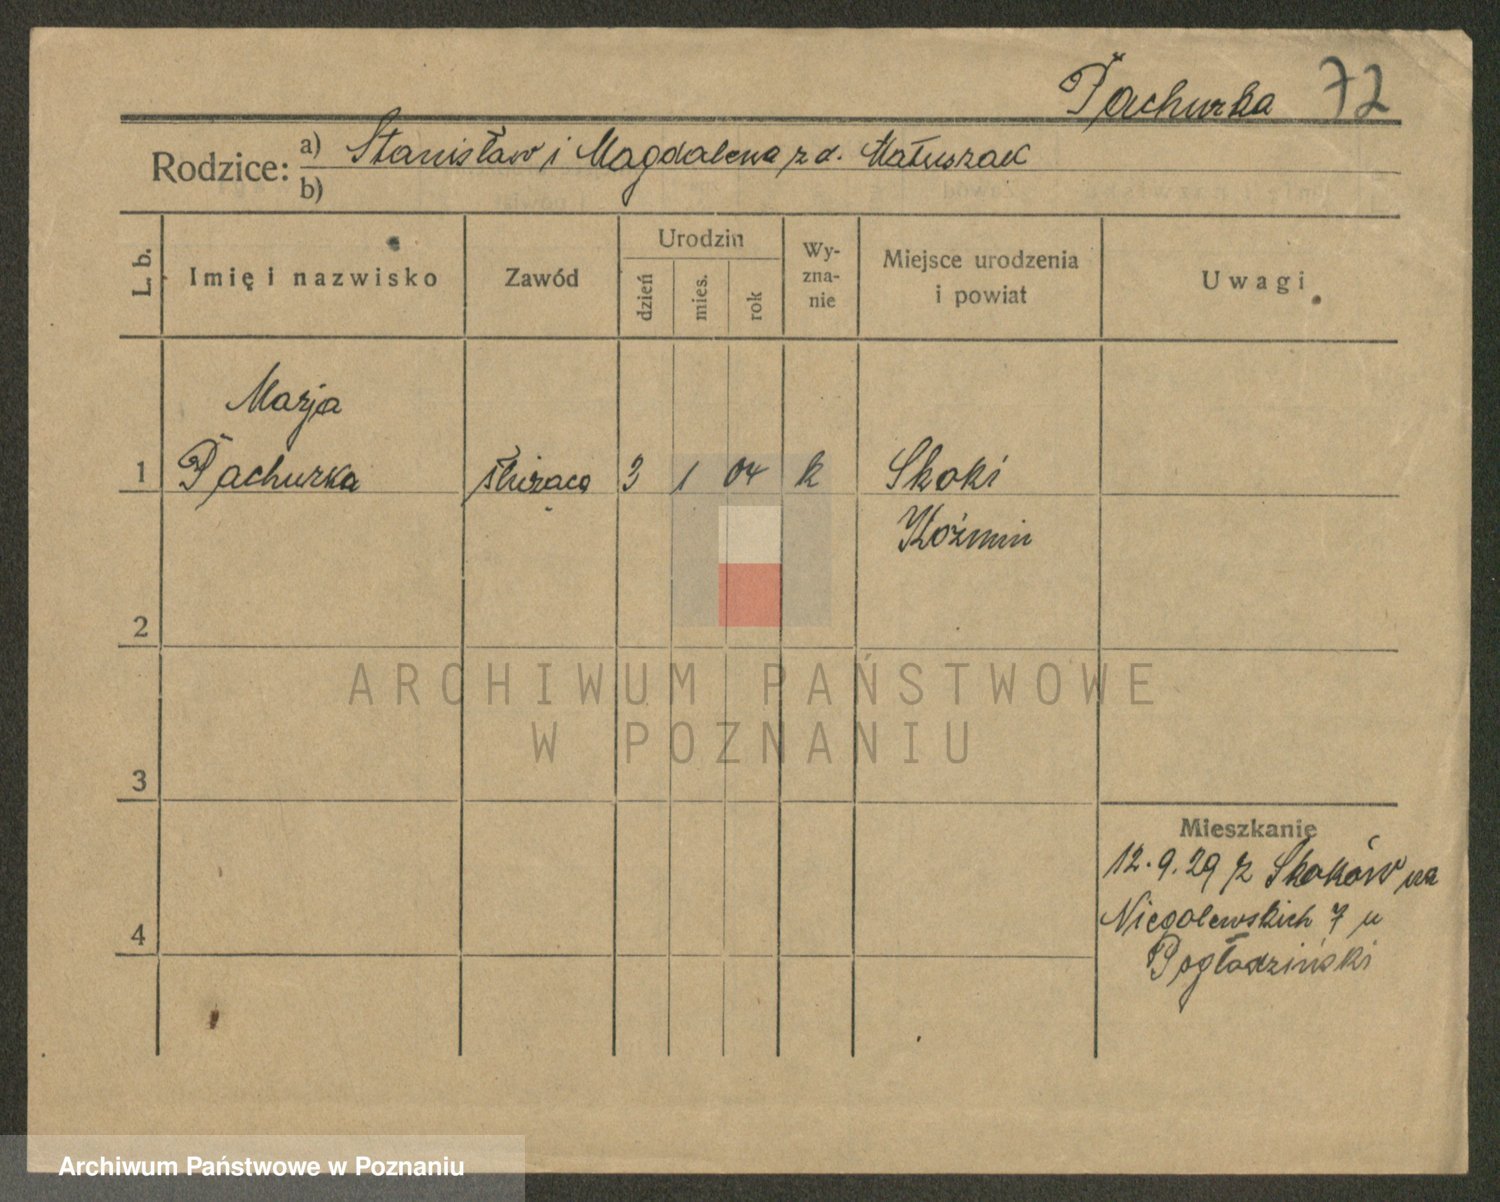 Pachurka 72
Rodzice: a) Stanisław i Magdalena z d. Matuszak
b)
L. b. Imię i nazwisko Zawód Urodzin dzień mies. rok Wy-zna-nie Miejsce urodzenia i powiat Uwagi
Marja
1 Pachurka służąca 3 1 04 k Skoki
Koźmin
2
ARCHIWUM PAŃSTWOWE
W POZNANIU
3
Mieszkanie
12.9.29 z Skoków na
Niegolewskich 7 u
4
Pogłodziński
Archiwum Państwowe w Poznaniu